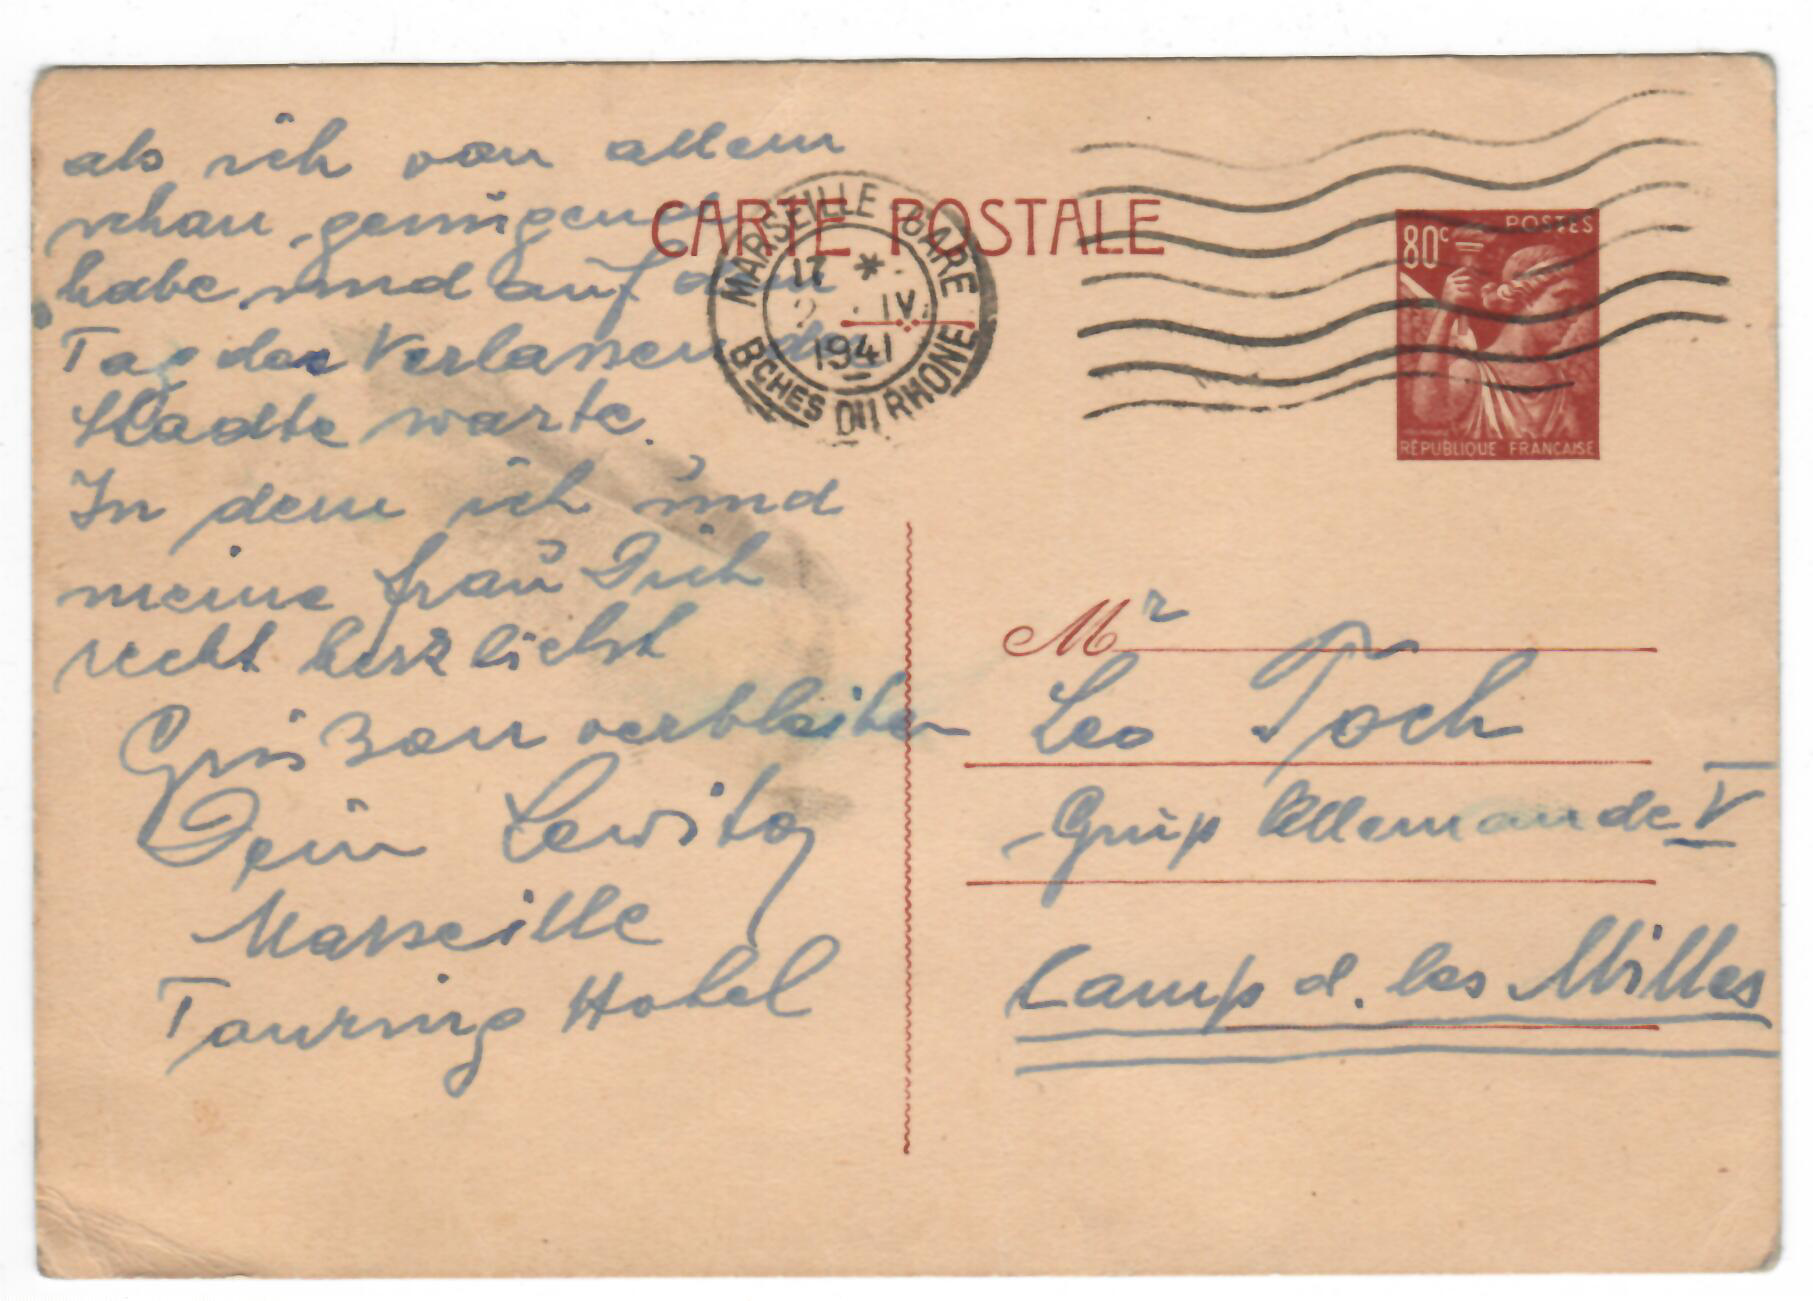 als ich von allem
schon genügend
habe und auf den
Tag des Verlassen der
Städte warte.
In dem ich und
meine Frau Dich
recht herzlichst
Grüßen verbleiben
Dein Lewita
Marseille
Touring Hotel
CARTE POSTALE
MARSEILLE GARE
17 *
2 · IV
1941
BCHES DU RHONE
POSTES
80c
RÉPUBLIQUE FRANÇAISE
Mr
Leo Toch
Grup Allemande V
Camp d. les Milles